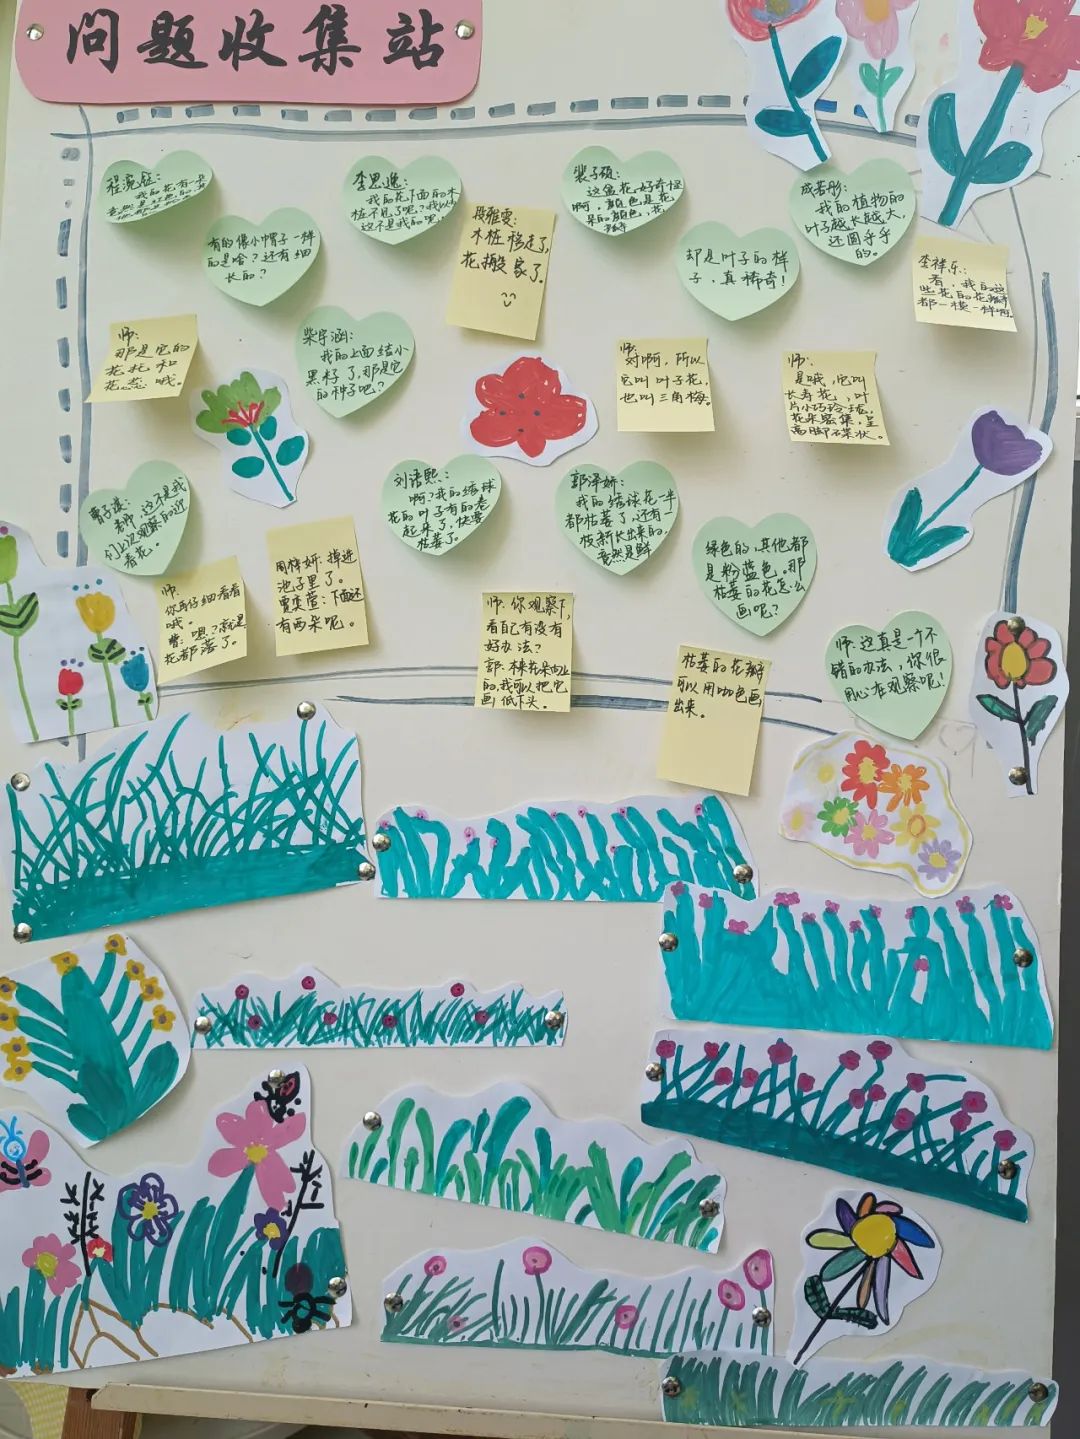 问题收集站
程琬钰：
我的花有一些
有的像小帽子一样
的是啥？还有细
长的？
师：
那是它的
花托和
花蕊哦。
李思逸：
我的花下面的木
桩不见了呢？我以为
这不是我的呢！
段雅雯：
木桩移走了，
花搬家了。
柴宇涵：
我的上面结小
黑籽了，那是它
的种子吧？
裴子硕：
这盆花好奇怪
啊，颜色是花
朵的颜色，花
却是叶子的样
子，真稀奇！
师：
对啊，所以
它叫叶子花，
也叫三角梅。
成若彤：
我的植物的
叶子越长越大，
还圆乎乎
的。
李祥乐：
看，我的这
些花的花瓣
都一模一样啊
师：
是哦，它叫
长寿花，叶
片小巧玲珑，
花朵密集，呈
高脚碟状。
老师，这不是我
们上次观察的迎
春花。
师：
你再仔细看看
哦。
曹：咦？就是
花都落了。
掉进
池子里了。
下面还
有两朵呢。
刘语熙：
啊？我的绣球
花的叶子有的卷
起来了，快要
枯萎了。
郭泽妍：
我的绣球花一半
都枯萎了，还有一
枝新长出来的，
竟然是鲜
绿色的，其他都
是粉蓝色。那
枯萎的花怎么
画呢？
师：你观察下，
看自己有没有
好办法？
郭：本来花朵向上
的，我可以把它
画低下头。
枯萎的花瓣
可以用咖色画
出来。
师：这真是一个不
错的办法，你很
用心在观察呢！